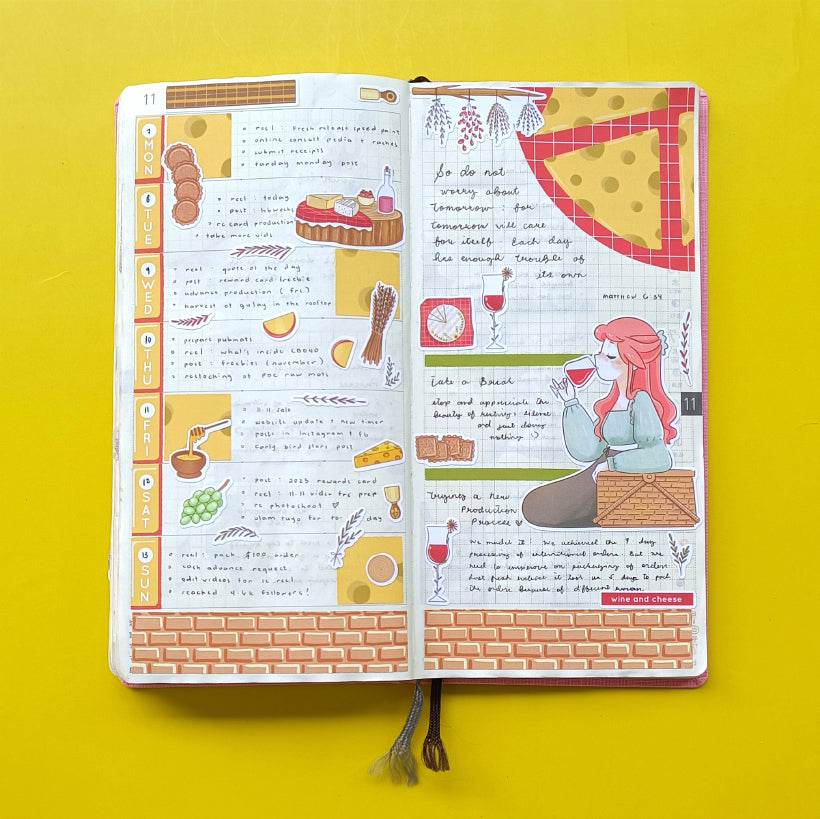 11
7 MON
reel : fresh release speed paint
online consult pedia + rashes
submit receipts
tunday monday post
8 TUE
reel : today
post : hbweek
re card production
take more vids
9 WED
reel : quote of the day
post : reward card freebie
advance production ( fri )
harvest of gulay in the rooftop
10 THU
prepare pubmats
reel : what's inside CB040
post : freebies (november)
restocking of poc raw mats
11 FRI
11.11 sale
website update + new timer
posts in instagram + fb
early bird stars post
12 SAT
post : 2023 rewards card
reel : 11.11 order fri prep
re photoshoot ♡
ulam rugo for ro- day
13 SUN
reel : pack $100 order
cash advance request
edit videos for ig reel
reached 4.6k followers!
So do not
worry about
tomorrow ; for
tomorrow will care
for itself. Each day
has enough trouble of
its own
MATTHEW 6:34
Take a Break
stop and appreciate the
beauty of resting, silence
and just doing
nothing :)
11
Trying a New
Production
Process ♡
We made it! We achieved the 7 day
processing of international orders. But we
need to improve on packaging of orders
the orders because of different
wine and cheese